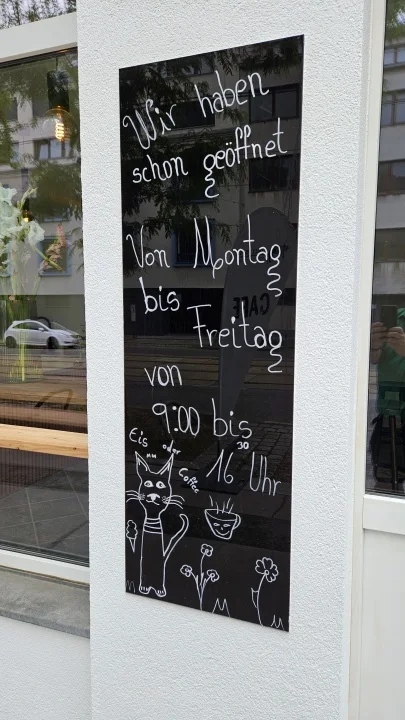 Wir haben
schon geöffnet
Von Montag
bis
Freitag
von
9:00 bis
16 30 Uhr
Eis
oder
Coffee
CAFE